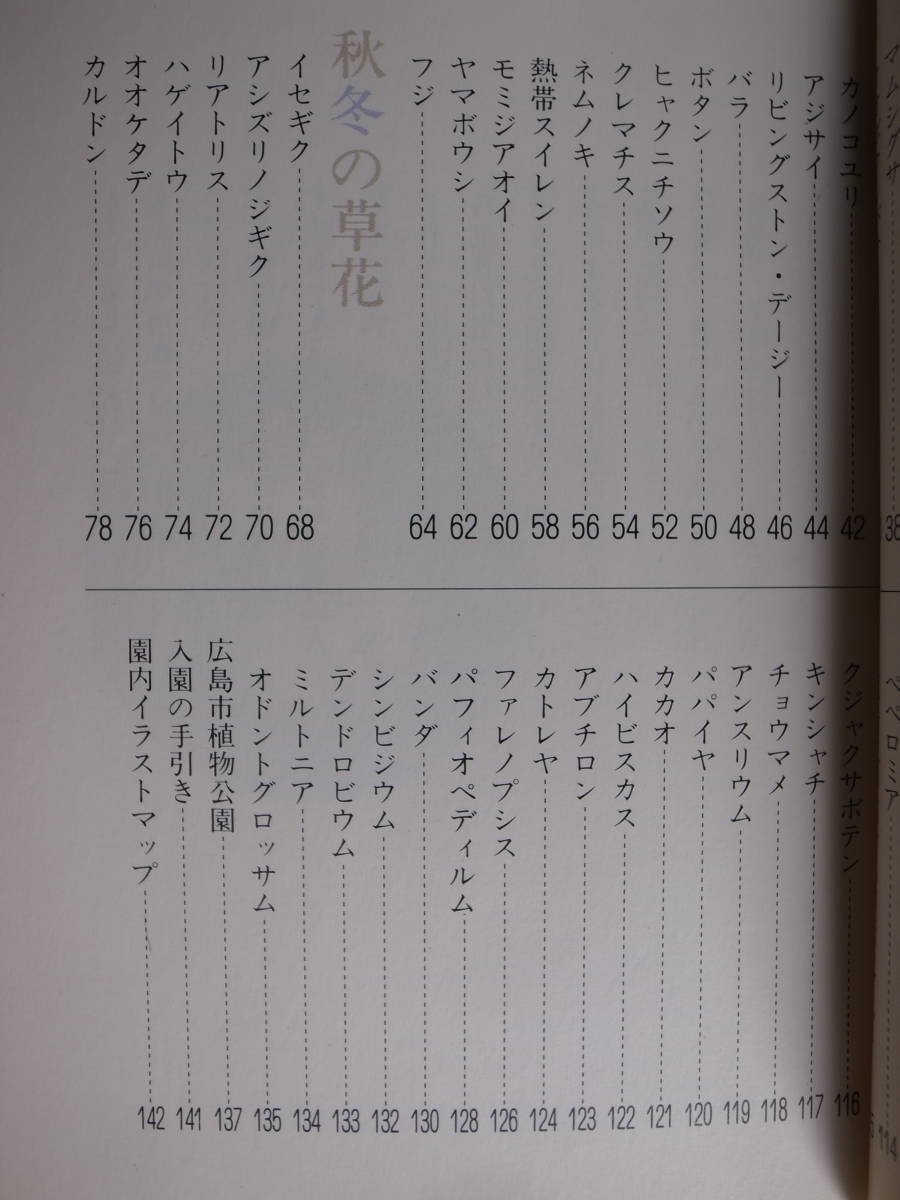 カノコユリ 42
アジサイ 44
リビングストン・デージー 46
バラ 48
ボタン 50
ヒャクニチソウ 52
クレマチス 54
ネムノキ 56
熱帯スイレン 58
モミジアオイ 60
ヤマボウシ 62
フジ 64
秋冬の草花
イセギク 68
アシズリノジギク 70
リアトリス 72
ハゲイトウ 74
オオケタデ 76
カルドン 78
ペペロミア 114
クジャクサボテン 116
キンシャチ 117
チョウマメ 118
アンスリウム 119
パパイヤ 120
カカオ 121
ハイビスカス 122
アブチロン 123
カトレヤ 124
ファレノプシス 126
パフィオペディルム 128
バンダ 130
シンビジウム 132
デンドロビウム 133
ミルトニア 134
オドントグロッサム 135
広島市植物公園 137
入園の手引き 141
園内イラストマップ 142